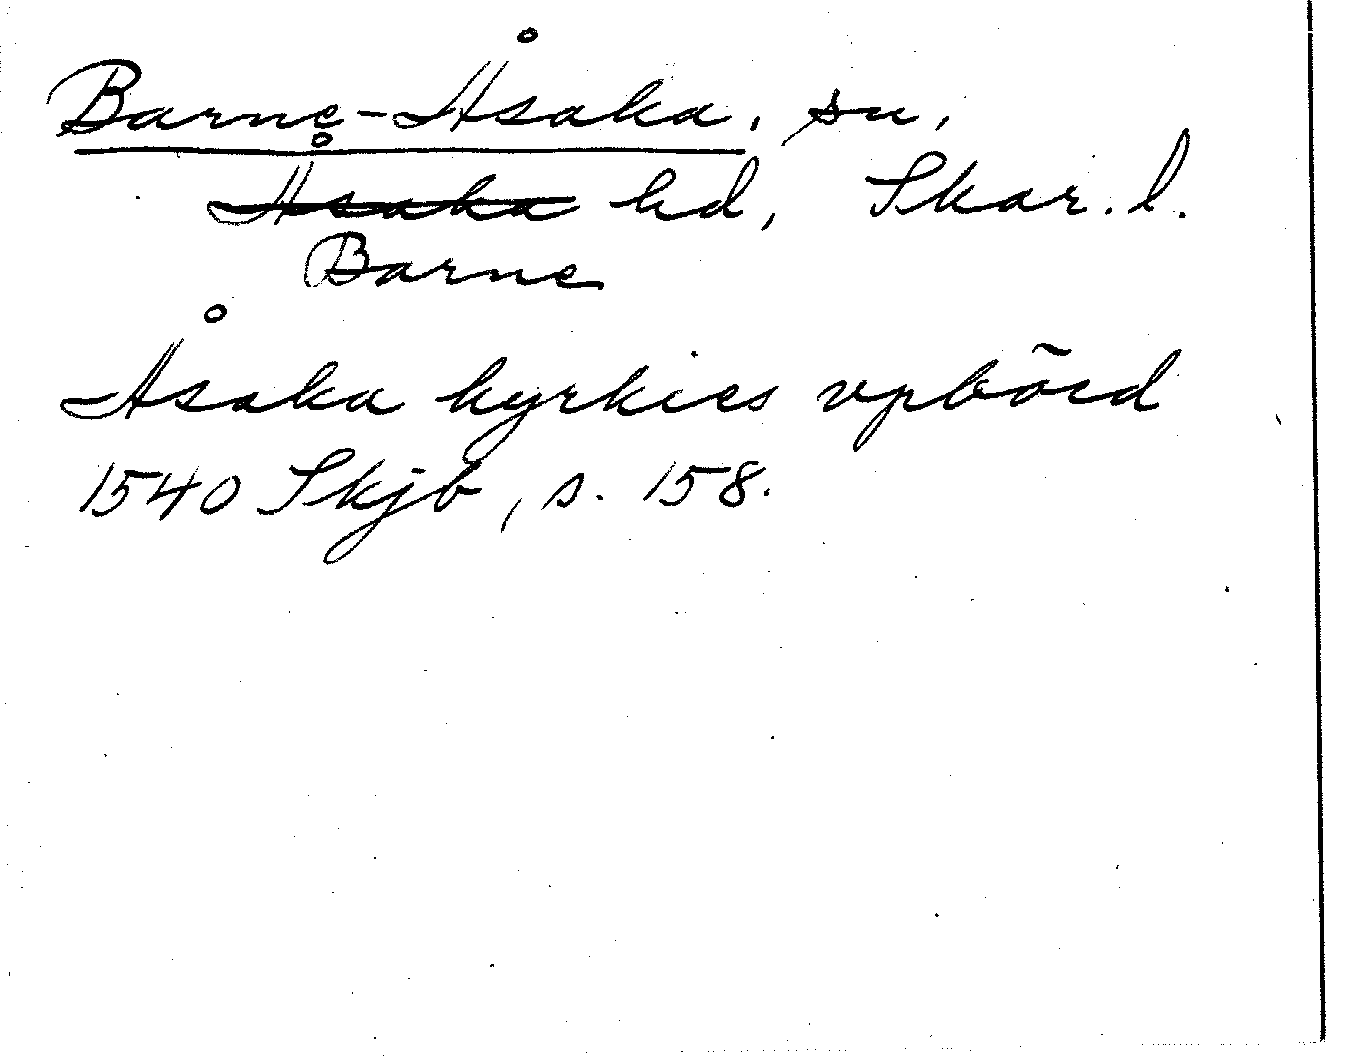 Barne-Åsaka, sn,
Åsaka hd, Skar. l.
Barne
Åsaka kyrkies vpbõrd
1540 Skjb, s. 158.